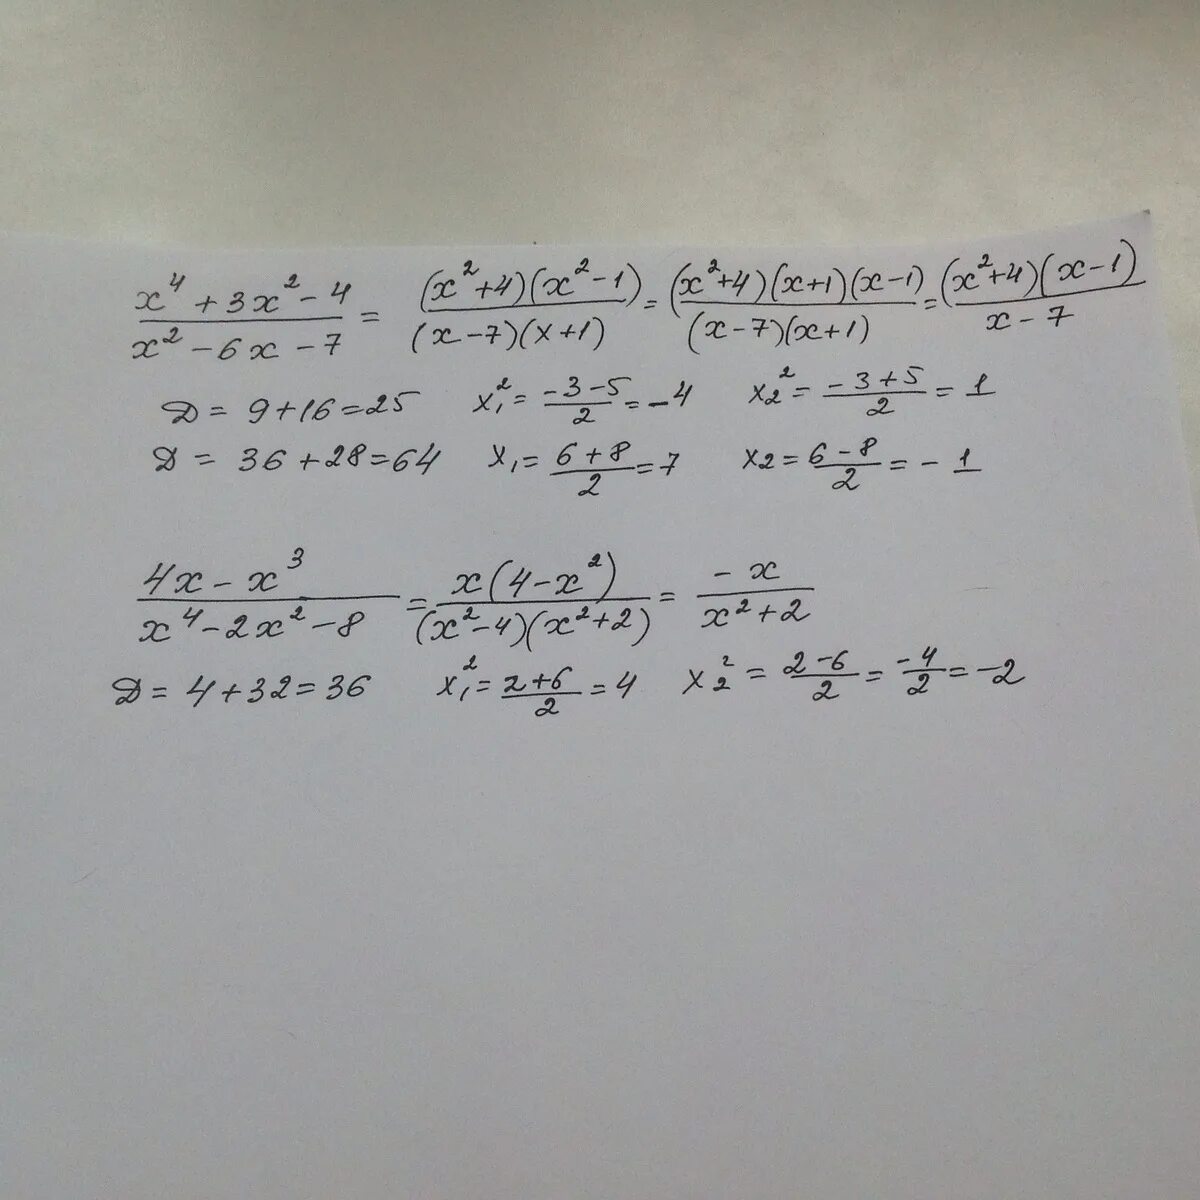 (x⁴ + 3x² - 4)/(x² - 6x - 7) = ((x² + 4)(x² - 1))/((x - 7)(x + 1)) = ((x² + 4)(x + 1)(x - 1))/((x - 7)(x + 1)) = ((x² + 4)(x - 1))/(x - 7)
Д = 9 + 16 = 25 x₁² = (-3 - 5)/2 = -4 x₂² = (-3 + 5)/2 = 1
Д = 36 + 28 = 64 x₁ = (6 + 8)/2 = 7 x₂ = (6 - 8)/2 = -1
(4x - x³)/(x⁴ - 2x² - 8) = (x(4 - x²))/((x² - 4)(x² + 2)) = (-x)/(x² + 2)
Д = 4 + 32 = 36 x₁² = (2 + 6)/2 = 4 x₂² = (2 - 6)/2 = (-4)/2 = -2